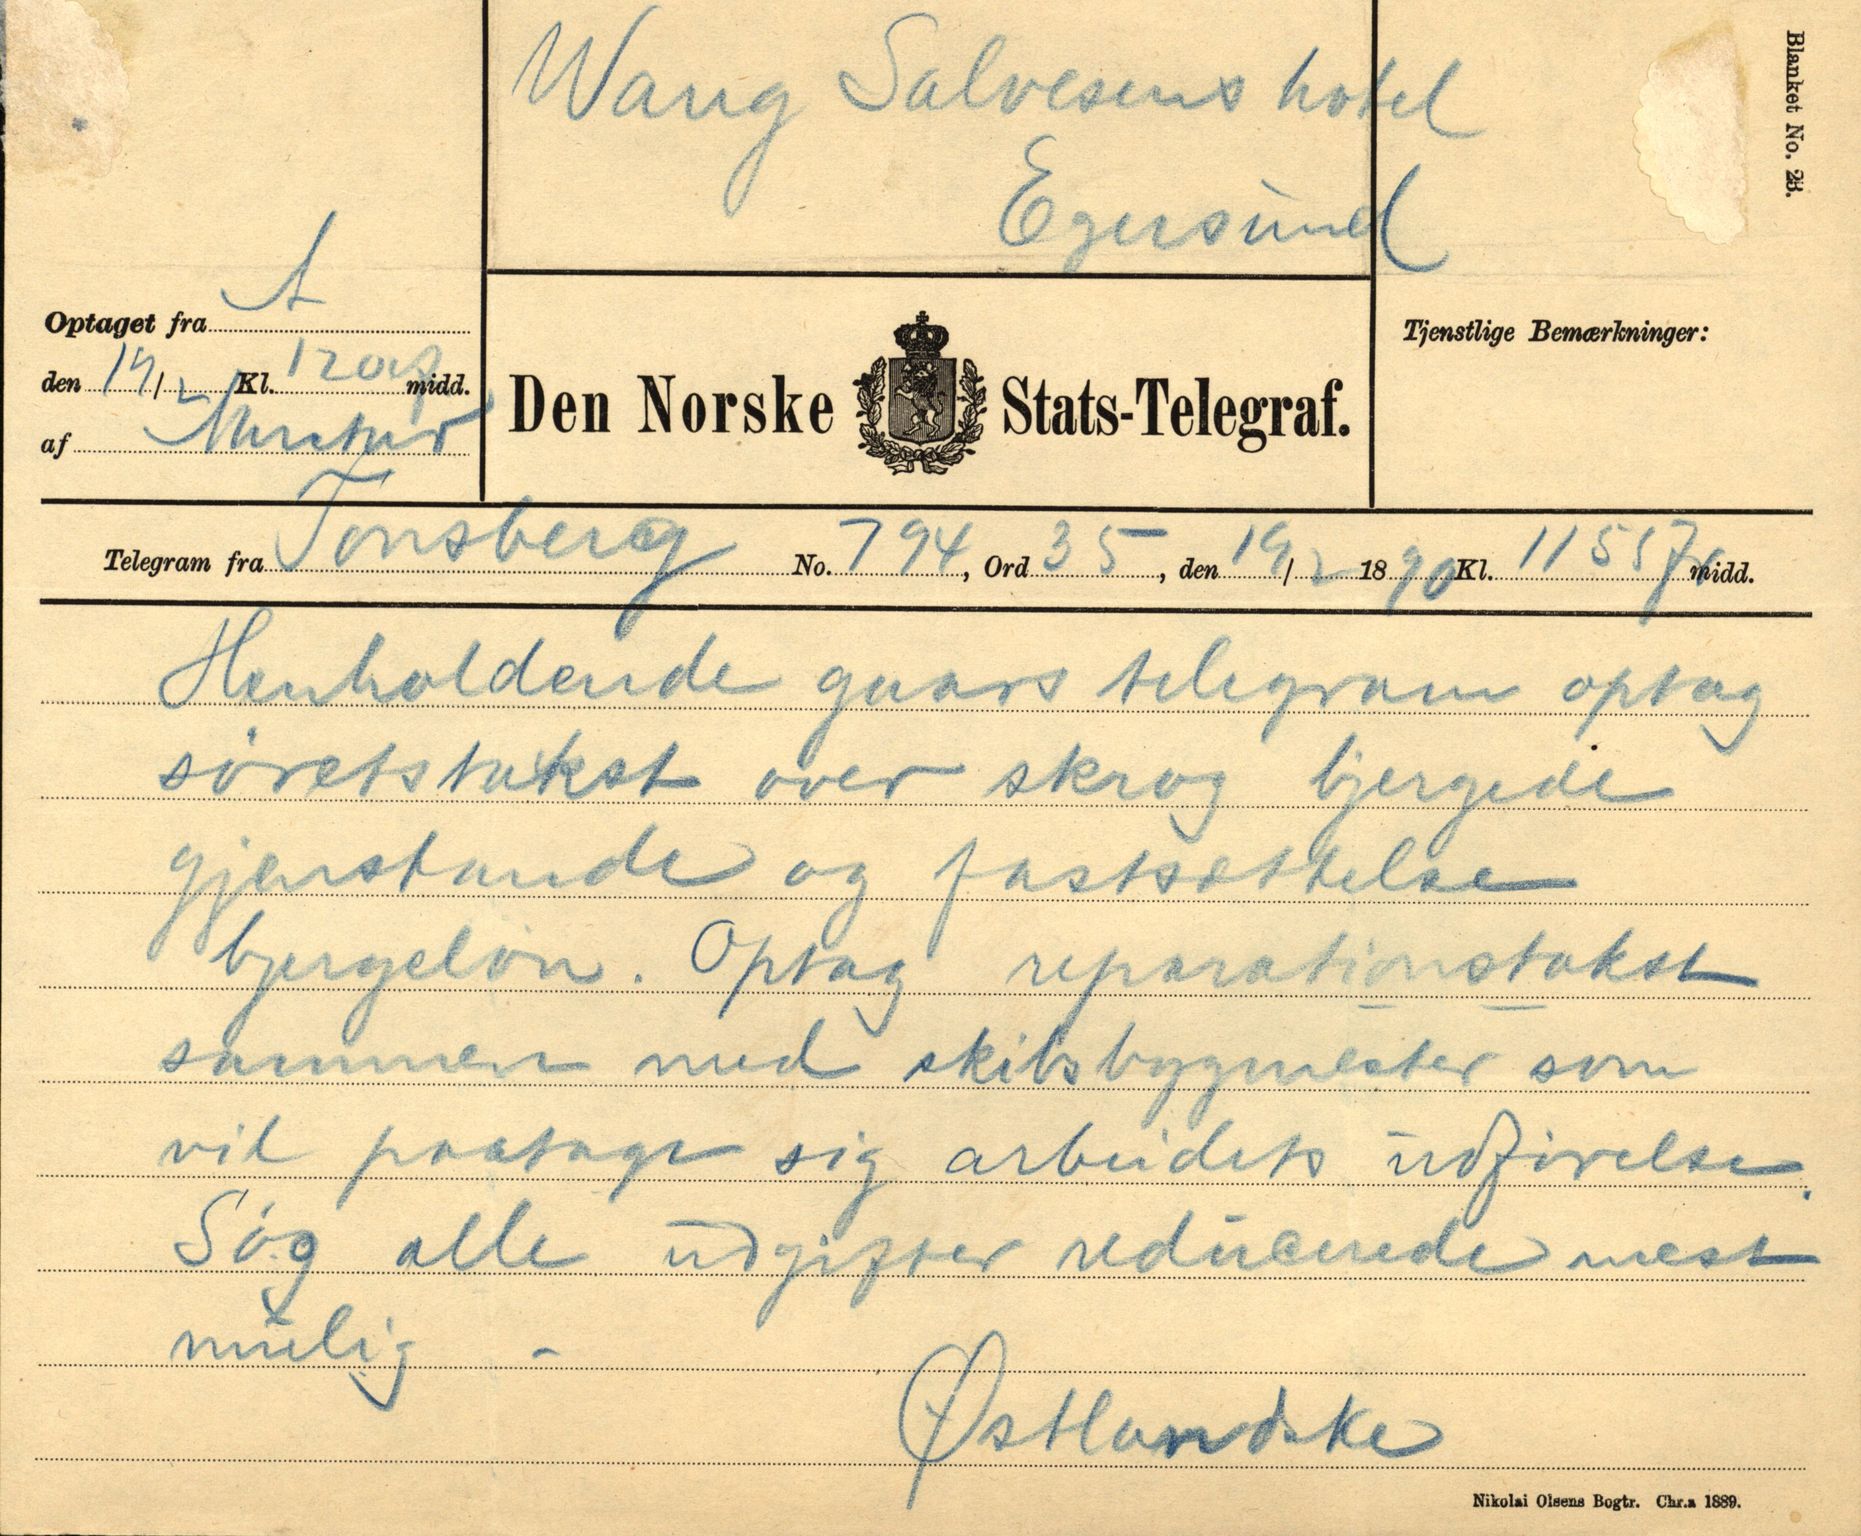 Blanket No. 23.
Wang Salvesens hotel
Egersund
Optaget fra A
den 19/2 Kl. 1205 midd.
af
Den Norske Stats-Telegraf.
Tjenstlige Bemærkninger:
Telegram fra Tønsberg No. 794, Ord 35, den 19/2 1890 Kl. 1155 F midd.
Henholdende gaars telegram optag
søretstakst over skrog bjergede
gjenstande og fastsættelse
bjergeløn. Optag reparationstakst
sammen med skibsbygmester som
vil paatage sig arbeidets udførelse.
Søg alle udgifter reducerede mest
mulig -
Østlandske
Nikolai Olsens Bogtr. Chr.a 1889.